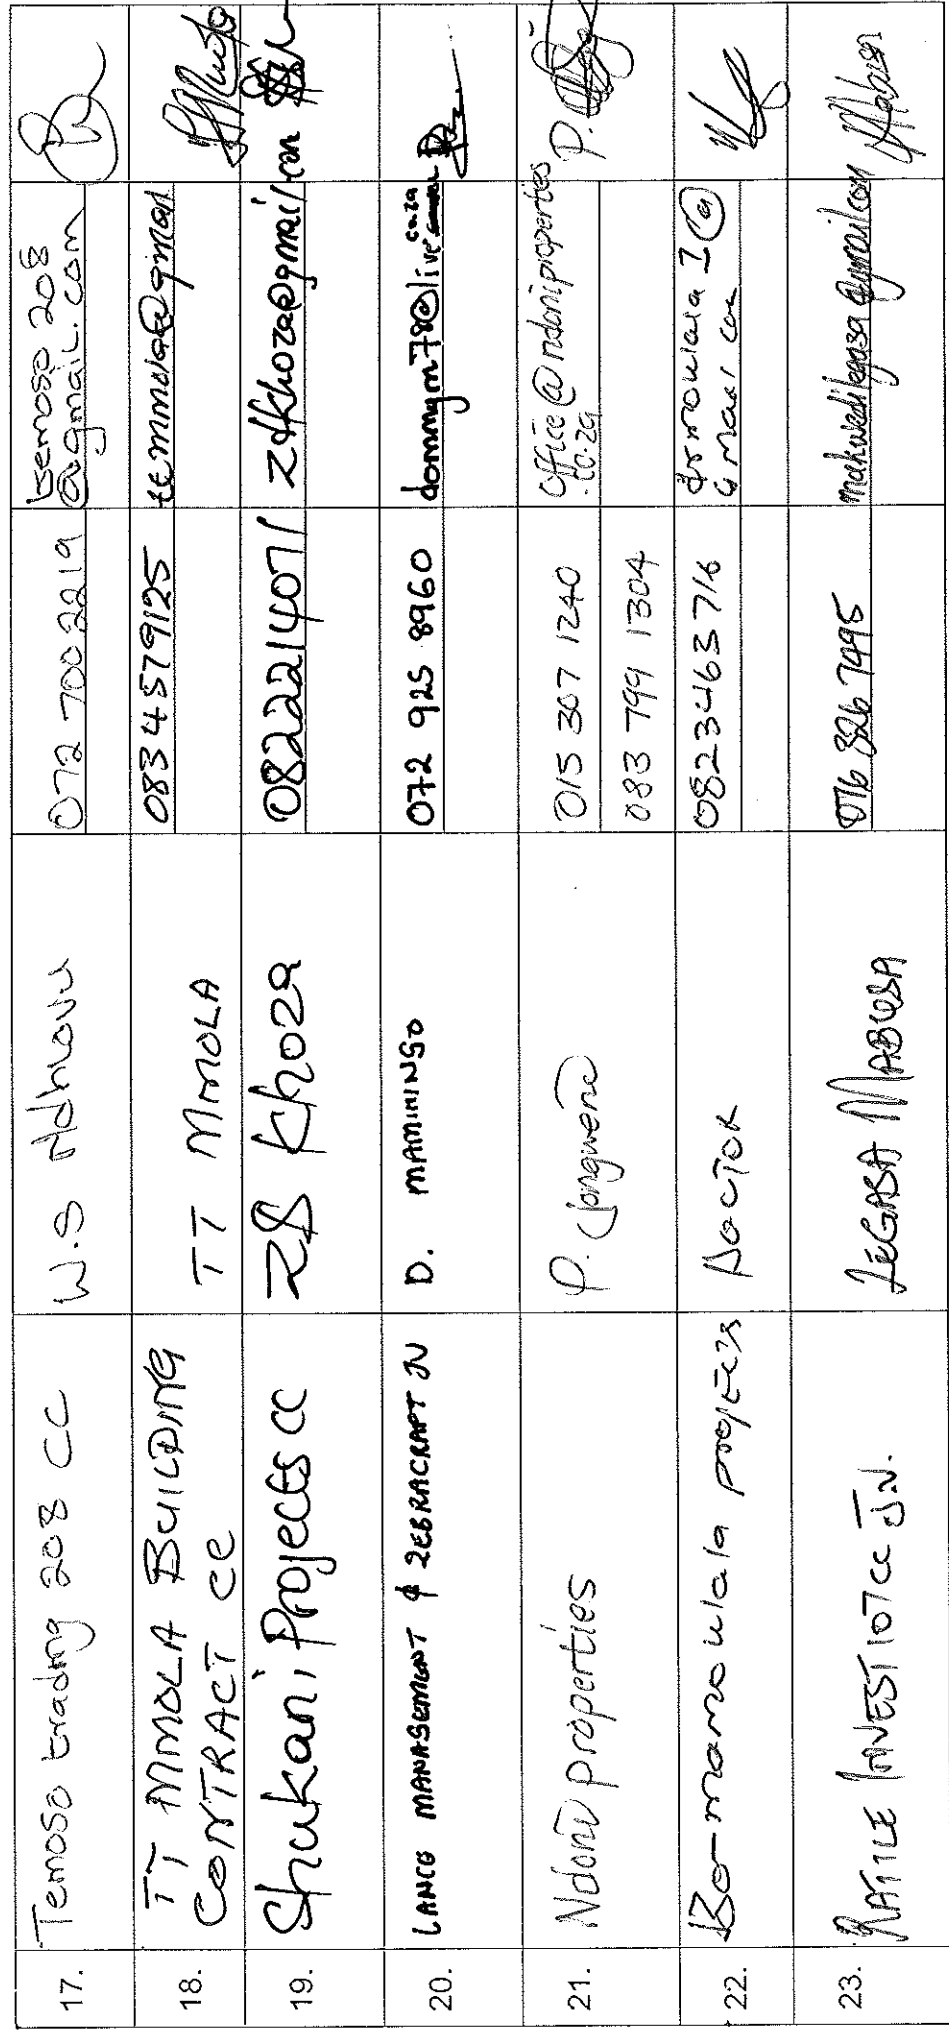 17. Temoso trading 208 CC W.S Ndhlovu 072 700 2219 temoso 208
@gmail.com
18. TT MMOLA BUILDING TT MMOLA 083 4579125 temmola@gmail
CONTRACT CC
19. Shukani Projects CC ZS Khoza 0822214071 zskhoza@gmail.com
20. LANCG MANAGEMENT & ZEBRACRAFT JV D. MAMINGO 072 925 8960 dommgm78@live
co.za
21. Ndoni properties P. 015 307 1240 office@ndoniproperties
.co.za
083 799 1304
22. Bo-mamokulala projects DOCTOR 0823463716
Gmail com
23. RATILE INVEST 107 CC J.V. LEGASA MABUSA 076 826 7495 makwedilegasa@gmail.com